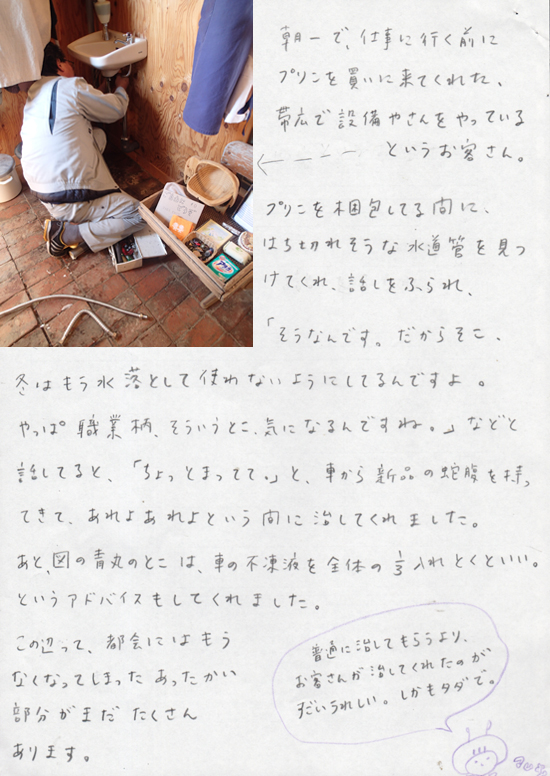 朝一で、仕事に行く前に
プリンを買いに来てくれた、
帯広で設備やさんをやっている
というお客さん。
プリンを梱包してる間に、
はち切れそうな水道管を見つ
けてくれ、話しをふられ、
「そうなんです。だからそこ、
冬はもう水落として使わないようにしてるんですよ。
やっぱ職業柄、そういうとこ、気になるんですね。」などと
話してると、「ちょっとまってて。」と、車から新品の蛇腹を持っ
てきて、あれよあれよという間に治してくれました。
あと、図の青丸のとこは、車の不凍液を全体の1/3入れとくといい。
というアドバイスもしてくれました。
この辺って、都会にはもう
なくなってしまったあったかい
部分がまだたくさん
あります。
普通に治してもらうより、
お客さんが治してくれたのが
だいうれしい。しかもタダで。